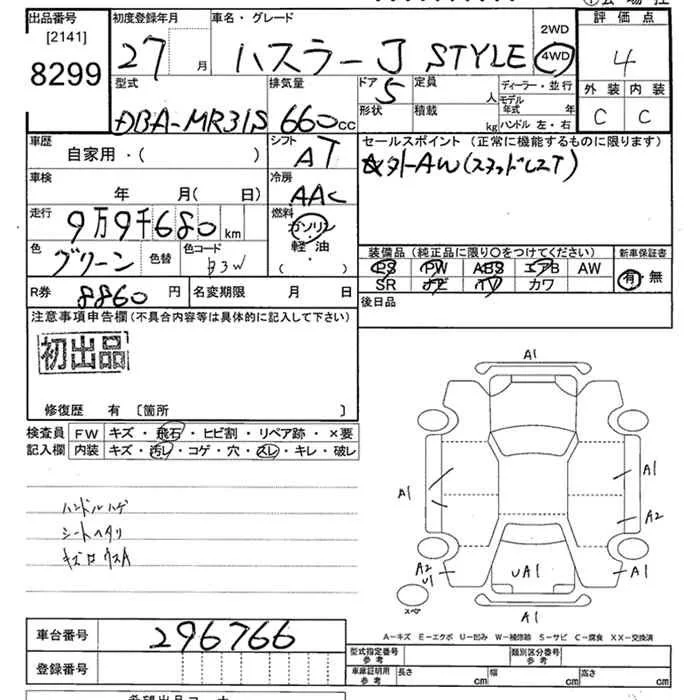 出品番号
[2141]
8299
初度登録年月
27 月
車名・グレード
ハスラー J STYLE
2WD
4WD
評価点
4
外装 内装
C C
型式
DBA-MR31S
排気量
660cc
ドア
5
形状
定員
人
積載
kg
ディーラー・並行
モデル年式 年
ハンドル 左・右
車歴
自家用・( )
シフト
AT
車検
年 月( 日)
冷房
AAC
走行
9万9千680 km
燃料
ガソリン
・
軽油
( )
色
グリーン
色替
色コード
R券
8860 円
名変期限 月 日
セールスポイント(正常に機能するものに限ります)
☆外-AW(スタッドレスT)
装備品(純正品に限り○をつけてください)
PS PW ABS エアB AW
SR ナビ TV カワ
新車保証書
有 無
後日品
注意事項申告欄(不具合内容等は具体的に記入して下さい)
初出品
修復歴 有 〔箇所 〕
検査員記入欄
FW キズ・飛石・ヒビ割・リペア跡・×要
内装 キズ・汚レ・コゲ・穴・スレ・キレ・破レ
ハンドルハゲ
シートヘタリ
A1
A1
A1
A2
A2
U1
UA1
A1
A1
スペア
車台番号
296766
登録番号
A-キズ E-エクボ U-凹み W-補修跡 S-サビ C-腐食 XX-交換済
型式指定番号
参考
類別区分番号
参考
車庫証明用
参考
長さ cm
幅 cm
高さ cm